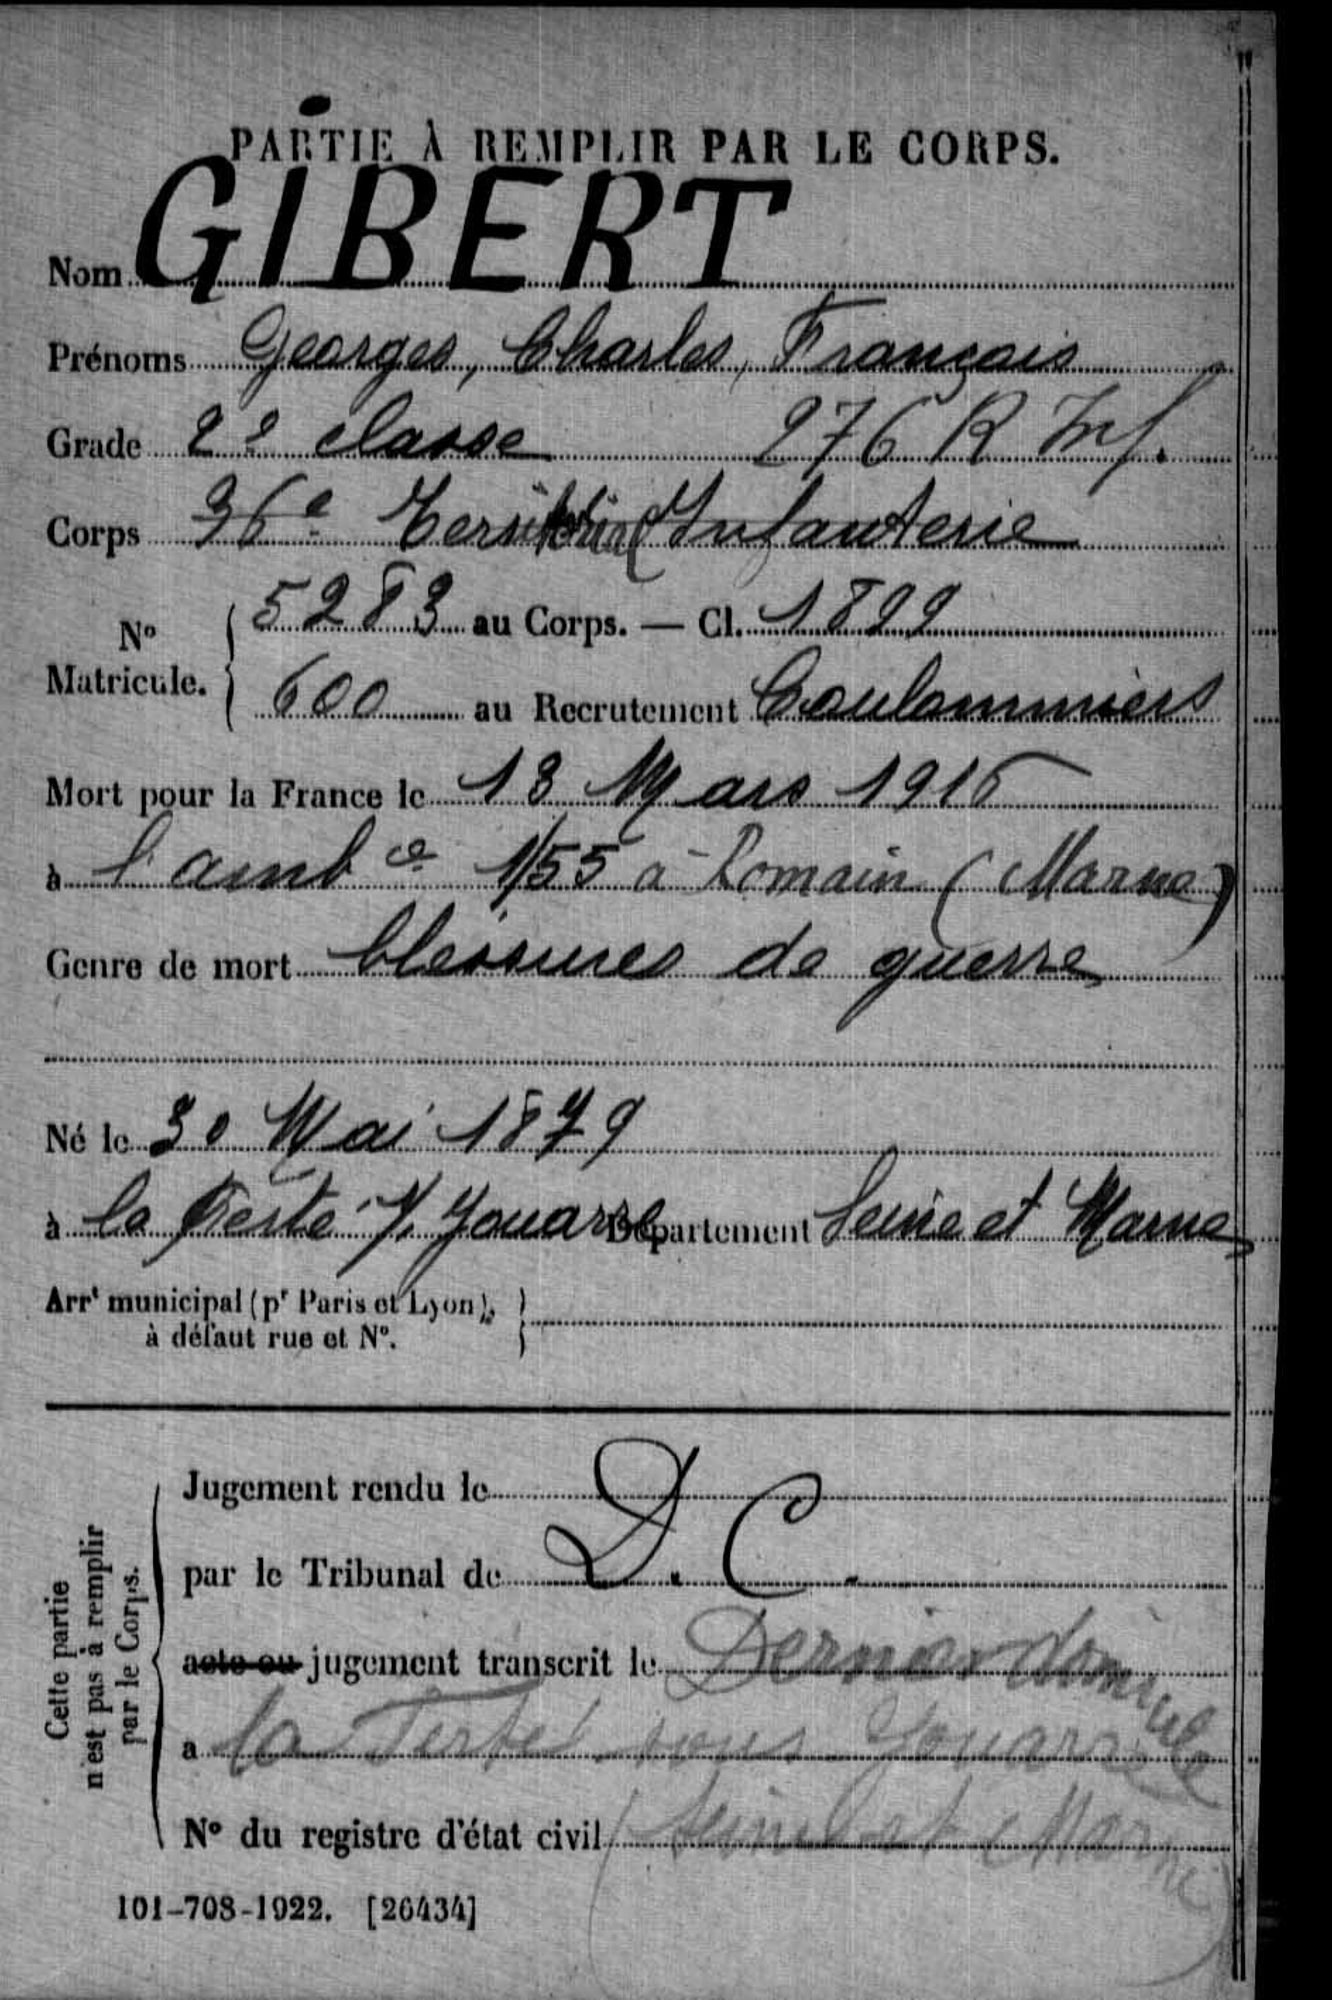 PARTIE À REMPLIR PAR LE CORPS.
Nom GIBERT
Prénoms Georges, Charles, François
Grade 2e classe 276 R Inf.
Corps 36e Territorial d'Infanterie
No Matricule. 5283 au Corps. — Cl. 1899
600 au Recrutement Coulommiers
Mort pour la France le 13 Mars 1916
à l'ambce 1/55 à Romain (Marne)
Genre de mort blessures de guerre
Né le 30 Mai 1879
à la Ferté s/ Jouarre Département Seine et Marne
Arrt municipal (pr Paris et Lyon), à défaut rue et No.
Cette partie n'est pas à remplir par le Corps.
Jugement rendu le
par le Tribunal de D. C.
acte ou jugement transcrit le Dernier domicile
a la Ferté sous Jouarre
No du registre d'état civil (Seine et Marne)
101-708-1922. [26434]